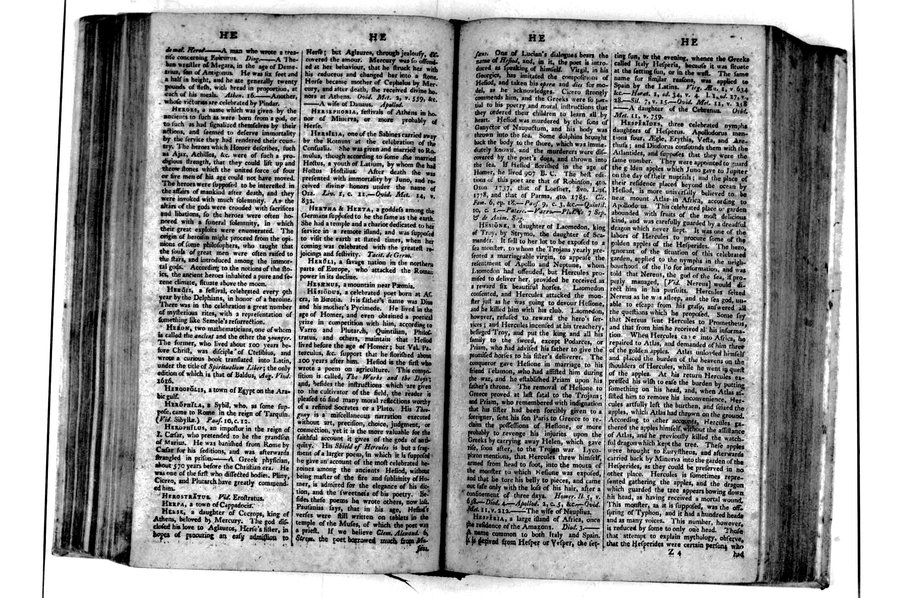 HE
HE
de mel. Herod——A man who wrote a trea-
tise concerning Epicurus. Diog.——A The-
ban wrestler of Megara, in the age of Deme-
trius, son of Antigonus. He was six feet and
a half in height, and he ate generally twenty
pounds of flesh, with bread in proportion, at
each of his meals. Athen. 16.——Another,
whose victories are celebrated by Pindar.
HEROES, a name which was given by the
ancients to such as were born from a god, or
to such as had signalized themselves by their
actions, and seemed to deserve immortality
by the service they had rendered their coun-
try. The heroes which Homer describes, such
as Ajax, Achilles, &c. were of such a pro-
digious strength, that they could lift up and
throw stones which the united force of four
or five men of his age could not have moved.
The heroes were supposed to be interested in
the affairs of mankind after death, and they
were invoked with much solemnity. As the
altars of the gods were crouded with sacrifices
and libations, so the heroes were often ho-
nored with a funeral solemnity, in which
their great exploits were enumerated. The
origin of heroism might proceed from the opi-
nions of some philosophers, who taught that
the souls of great men were often raised to
the stars, and introduced among the immor-
tal gods. According to the notions of the Sto-
ics, the ancient heroes inhabited a pure and se-
rene climate, situate above the moon.
HEROIS, a festival, celebrated every 9th
year by the Delphians, in honor of a heroine.
There was in the celebration a great number
of mysterious rites, with a representation of
something like Semele's resurrection.
HERON, two mathematicians, one of whom
is called the ancient and the other the younger.
The former, who lived about 100 years be-
fore Christ, was disciple of Ctesibius, and
wrote a curious book translated into Latin,
under the title of Spiritualium Liber; the only
edition of which is that of Baldus, Aug. Vind.
1616.
HEROOPOLIS, a town of Egypt on the Ara-
bic gulf.
HEROPHILA, a Sibyl, who, as some sup-
pose, came to Rome in the reign of Tarquin.
(Vid. Sibyllæ.) Paus. 10, c. 12.
HEROPHILUS, an impostor in the reign of
J. Cæsar, who pretended to be the grandson
of Marius. He was banished from Rome by
Cæsar for his seditions, and was afterwards
strangled in prison.——A Greek physician,
about 570 years before the Christian era. He
was one of the first who dissected bodies. Pliny,
Cicero, and Plutarch have greatly commend-
ed him.
HEROSTRATUS. Vid. Erostratus.
HERPA, a town of Cappadocia.
HERSE, a daughter of Cecrops, king of
Athens, beloved by Mercury. The god dis-
closed his love to Aglauros, Herse's sister, in
hopes of procuring an easy admission to
Herse; but Aglauros, through jealousy, dis-
covered the amour. Mercury was so offend-
ed at her behaviour, that he struck her with
his caduceus and changed her into a stone.
Herse became mother of Cephalus by Mer-
cury, and after death, she received divine ho-
nors at Athens. Ovid. Met. 2, v. 559, &c.
——A wife of Danaus. Apollod.
HERSEPHORIA, festivals of Athens in ho-
nor of Minerva, or more probably of
Herse.
HERSILIA, one of the Sabines carried away
by the Romans at the celebration of the
Consualia. She was given and married to Ro-
mulus, though according to some she married
Hostus, a youth of Latium, by whom she had
Hostus Hostilius. After death she was
presented with immortality by Juno, and re-
ceived divine honors under the name of
Ora. Liv. 1, c. 11.—Ovid. Met. 14, v.
832.
HERTHA & HERTA, a goddess among the
Germans supposed to be the same as the earth.
She had a temple and a chariot dedicated to her
service in a remote island, and was supposed
to visit the earth at stated times, when her
coming was celebrated with the greatest re-
joicings and festivity. Tacit. de Germ.
HERULI, a savage nation in the northern
parts of Europe, who attacked the Roman
power in its decline.
HESENUS, a mountain near Pæonia.
HESIODUS, a celebrated poet born at As-
cra, in Bœotia. His father's name was Dius
and his mother's Pycimede. He lived in the
age of Homer, and even obtained a poetical
prize in competition with him, according to
Varro and Plutarch. Quintilian, Philos-
tratus, and others, maintain that Hesiod
lived before the age of Homer; but Val. Pa-
terculus, &c. support that he florished about
100 years after him. Hesiod is the first who
wrote a poem on agriculture. This compo-
sition is called, The Works and the Days;
and, besides the instructions which are given
to the cultivator of the field, the reader is
pleased to find many moral reflections worthy
of a refined Socrates or a Plato. His The-
gony is a miscellaneous narration executed
without art, precision, choice, judgment, or
connection, yet it is the more valuable for the
faithful account it gives of the gods of anti-
quity. His Shield of Hercules is but a frag-
ment of a larger poem, in which it is supposed
he gave an account of the most celebrated he-
roines among the ancients. Hesiod, without
being master of the fire and sublimity of Ho-
mer, is admired for the elegance of his dic-
tion, and the sweetness of his poetry. Be-
sides these poems he wrote others, now lost.
Pausanias says, that in his age, Hesiod's
verses were still written on tablets in the
temple of the Muses, of which the poet was
a priest. If we believe Clem. Alexand. 6,
Strom. the poet borrowed much from Mu-
sæus.
HE
HE
sæus. One of Lucian's dialogues bears the
name of Hesiod, and, in it, the poet is intro-
duced as speaking of himself. Virgil, in his
Georgics, has imitated the compositions of
Hesiod, and taken his opera and dies for mo-
del, as he acknowledges. Cicero strongly
commends him, and the Greeks were so par-
tial to his poetry and moral instructions that
they ordered their children to learn all by
heart. Hesiod was murdered by the sons of
Ganyctor of Naupactum, and his body was
thrown into the sea. Some dolphins brought
back the body to the shore, which was imme-
diately known, and the murderers were dis-
covered by the poet's dogs, and thrown into
the sea. If Hesiod florished in the age of
Homer, he lived 907 B. C. The best edi-
tions of this poet are that of Robinson, 4to.
Oxon. 1737, that of Loesner, 8vo. Lips.
1778, and that of Parma, 4to. 1785. Cic.
Fam. 6, ep. 18.—Paus. 9, c. 3, &c.—Quintil.
10, c. 1.—Paterc.—Varro.—Plut. 7 Sep.
& de Anim. Sag.
HESIONE, a daughter of Laomedon, king
of Troy, by Strymo, the daughter of Sca-
mander. It fell to her lot to be exposed to a
sea monster, to whom the Trojans yearly pre-
sented a marriageable virgin, to appease the
resentment of Apollo and Neptune, whom
Laomedon had offended, but Hercules pro-
mised to deliver her, provided he received as
a reward six beautiful horses. Laomedon
consented, and Hercules attacked the mon-
ster just as he was going to devour Hesione,
and he killed him with his club. Laomedon,
however, refused to reward the hero's ser-
vices; and Hercules incensed at his treachery,
besieged Troy, and put the king and all his
family to the sword, except Podarces, or
Priam, who had advised his father to give the
promised horses to his sister's deliverer. The
conqueror gave Hesione in marriage to his
friend Telamon, who had assisted him during
the war, and he established Priam upon his
father's throne. The removal of Hesione to
Greece proved at last fatal to the Trojans;
and Priam, who remembered with indignation
that his sister had been forcibly given to a
foreigner, sent his son Paris to Greece to re-
claim the possessions of Hesione, or more
probably to revenge his injuries upon the
Greeks by carrying away Helen, which gave
rise, soon after, to the Trojan war. Lyco-
phron mentions, that Hercules threw himself,
armed from head to foot, into the mouth of
the monster to which Hesione was exposed,
and that he tore his belly to pieces, and came
out safe only with the loss of his hair, after a
confinement of three days. Homer. Il. 5, v.
638.—Diod. 4.—Apollod. 2, c. 5, &c.—Ovid.
Met. 11, v. 212.——The wife of Nauplius.
HESPERIA, a large island of Africa, once
the residence of the Amazons. Diod. 3.——
A name common to both Italy and Spain.
It is derived from Hesper or Vesper, the set-
ting sun, or the evening, whence the Greeks
called Italy Hesperia, because it was situate
at the setting sun, or in the west. The same
name for similar reasons, was applied to
Spain by the Latins. Virg. Æn. 1, v. 634
&c.—Horat. 1, od. 34, v. 4. l. 1, od. 27, v.
28.—Sil. 7, v. 15.—Ovid. Met. 11, v. 258
——A daughter of the Cebrenus. Ovid.
Met. 11, v. 759.
HESPERIDES, three celebrated nymphs
daughters of Hesperus. Apollodorus men-
tions four, Ægle, Erythia, Vesta, and Are-
thusa; and Diodorus confounds them with the
Atlantides, and supposes that they were the
same number. They were appointed to guard
the golden apples which Juno gave to Jupiter
on the day of their nuptials; and the place of
their residence placed beyond the ocean by
Hesiod, is more universally believed to be
near mount Atlas in Africa, according to
Apollodorus. This celebrated place or garden
abounded with fruits of the most delicious
kind, and was carefully guarded by a dreadful
dragon which never slept. It was one of the
labors of Hercules to procure some of the
golden apples of the Hesperides. The hero,
ignorant of the situation of this celebrated
garden, applied to the nymphs in the neigh-
bourhood of the Po for information, and was
told that Nereus, the god of the sea, if pro-
perly managed, [Vid. Nereus] would di-
rect him in his pursuits. Hercules seized
Nereus as he was asleep, and the sea god, un-
able to escape from his grasp, answered all
the questions which he proposed. Some say
that Nereus sent Hercules to Prometheus,
and that from him he received all his informa-
tion. When Hercules came into Africa, he
repaired to Atlas, and demanded of him three
of the golden apples. Atlas unloaded himself
and placed the burden of the heavens on the
shoulders of Hercules, while he went in quest
of the apples. At his return Hercules ex-
pressed his wish to ease the burden by putting
something on his head, and, when Atlas as-
sisted him to remove his inconvenience, Her-
cules artfully left the burthen, and seized the
apples, which Atlas had thrown on the ground.
According to other accounts, Hercules ga-
thered the apples himself, without the assistance
of Atlas, and he previously killed the watch-
ful dragon which kept the tree. These apples
were brought to Eurystheus, and afterwards
carried back by Minerva into the garden of the
Hesperides, as they could be preserved in no
other place. Hercules is sometimes repre-
sented gathering the apples, and the dragon
which guarded the tree appears bowing down
his head, as having received a mortal wound.
This monster, as it is supposed, was the off-
spring of Typhon, and it had a hundred heads
and as many voices. This number, however,
is reduced by some to only one head. Those
that attempt to explain mythology, observe,
that the Hesperides were certain persons who
Z 4
had